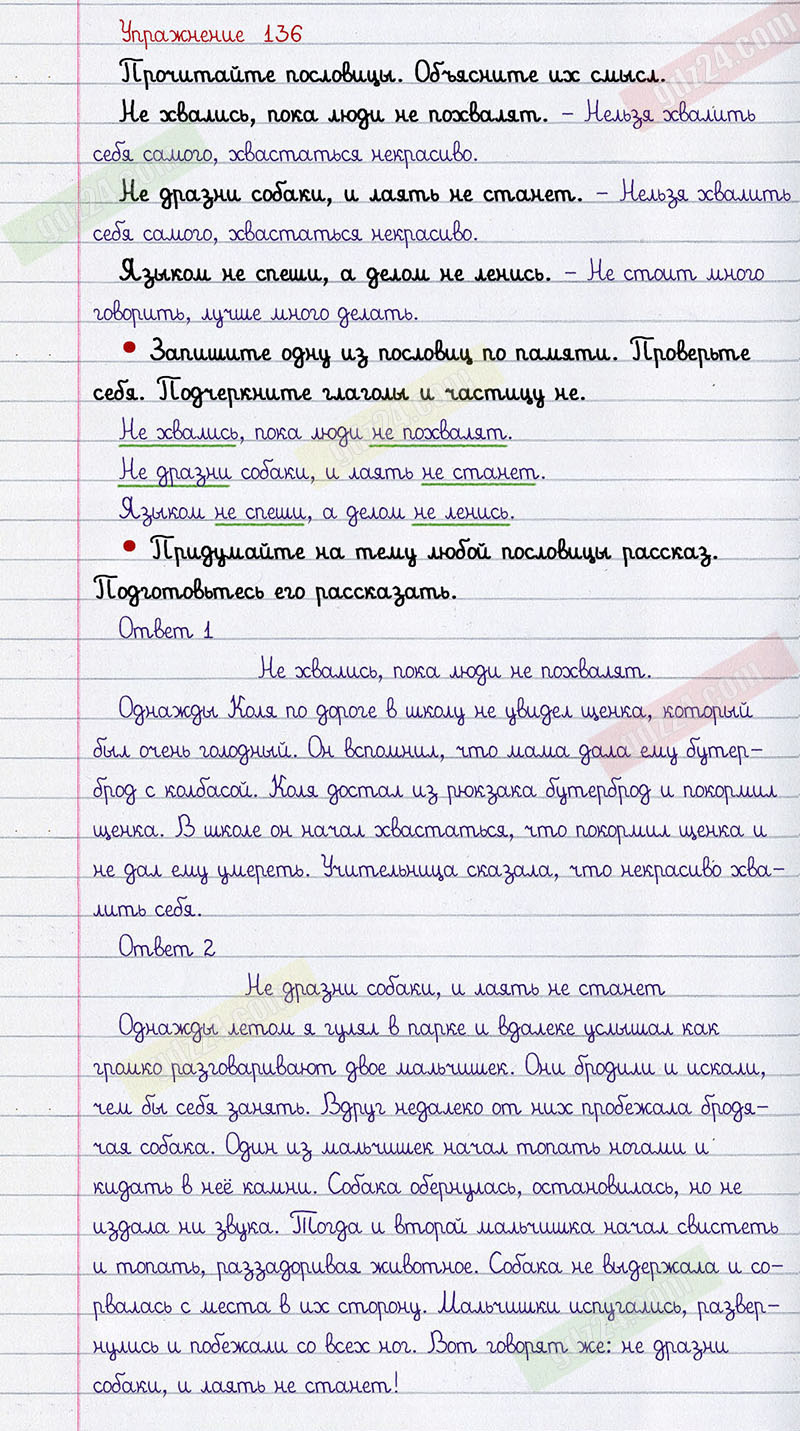 Упражнение 136
Прочитайте пословицы. Объясните их смысл.
Не хвались, пока люди не похвалят. – Нельзя хвалить
себя самого, хвастаться некрасиво.
Не дразни собаки, и лаять не станет. – Нельзя хвалить
себя самого, хвастаться некрасиво.
Языком не спеши, а делом не ленись. – Не стоит много
говорить, лучше много делать.
• Запишите одну из пословиц по памяти. Проверьте
себя. Подчеркните глаголы и частицу не.
Не хвались, пока люди не похвалят.
Не дразни собаки, и лаять не станет.
Языком не спеши, а делом не ленись.
• Придумайте на тему любой пословицы рассказ.
Подготовьтесь его рассказать.
Ответ 1
Не хвались, пока люди не похвалят.
Однажды Коля по дороге в школу не увидел щенка, который
был очень голодный. Он вспомнил, что мама дала ему бутер-
брод с колбасой. Коля достал из рюкзака бутерброд и покормил
щенка. В школе он начал хвастаться, что покормил щенка и
не дал ему умереть. Учительница сказала, что некрасиво хва-
лить себя.
Ответ 2
Не дразни собаки, и лаять не станет
Однажды летом я гулял в парке и вдалеке услышал как
громко разговаривают двое мальчишек. Они бродили и искали,
чем бы себя занять. Вдруг недалеко от них пробежала бродя-
чая собака. Один из мальчишек начал топать ногами и
кидать в неё камни. Собака обернулась, остановилась, но не
издала ни звука. Тогда и второй мальчишка начал свистеть
и топать, раззадоривая животное. Собака не выдержала и со-
рвалась с места в их сторону. Мальчишки испугались, развер-
нулись и побежали со всех ног. Вот говорят же: не дразни
собаки, и лаять не станет!
gdz24.com
gdz24.com
gdz24.com
gdz24.com
gdz24.com
gdz24.com